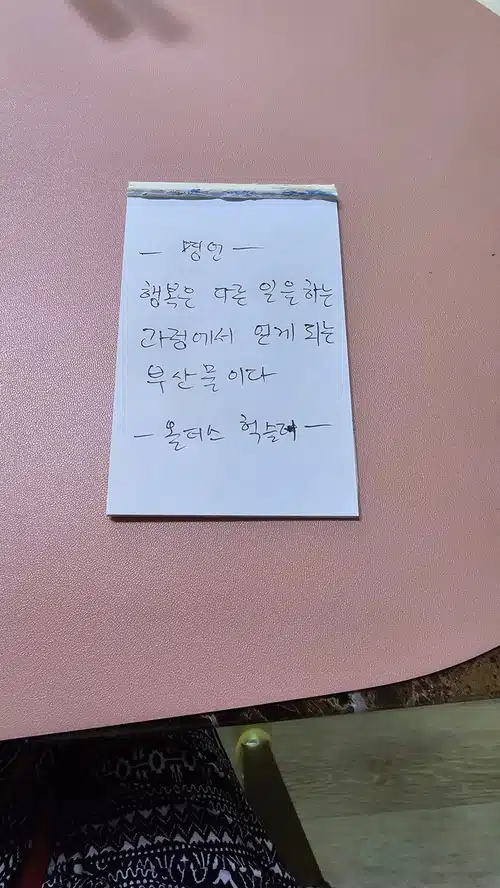 - 명언 -
행복은 다른 일을 하는
과정에서 얻게 되는
부산물이다
- 올더스 헉슬리 -